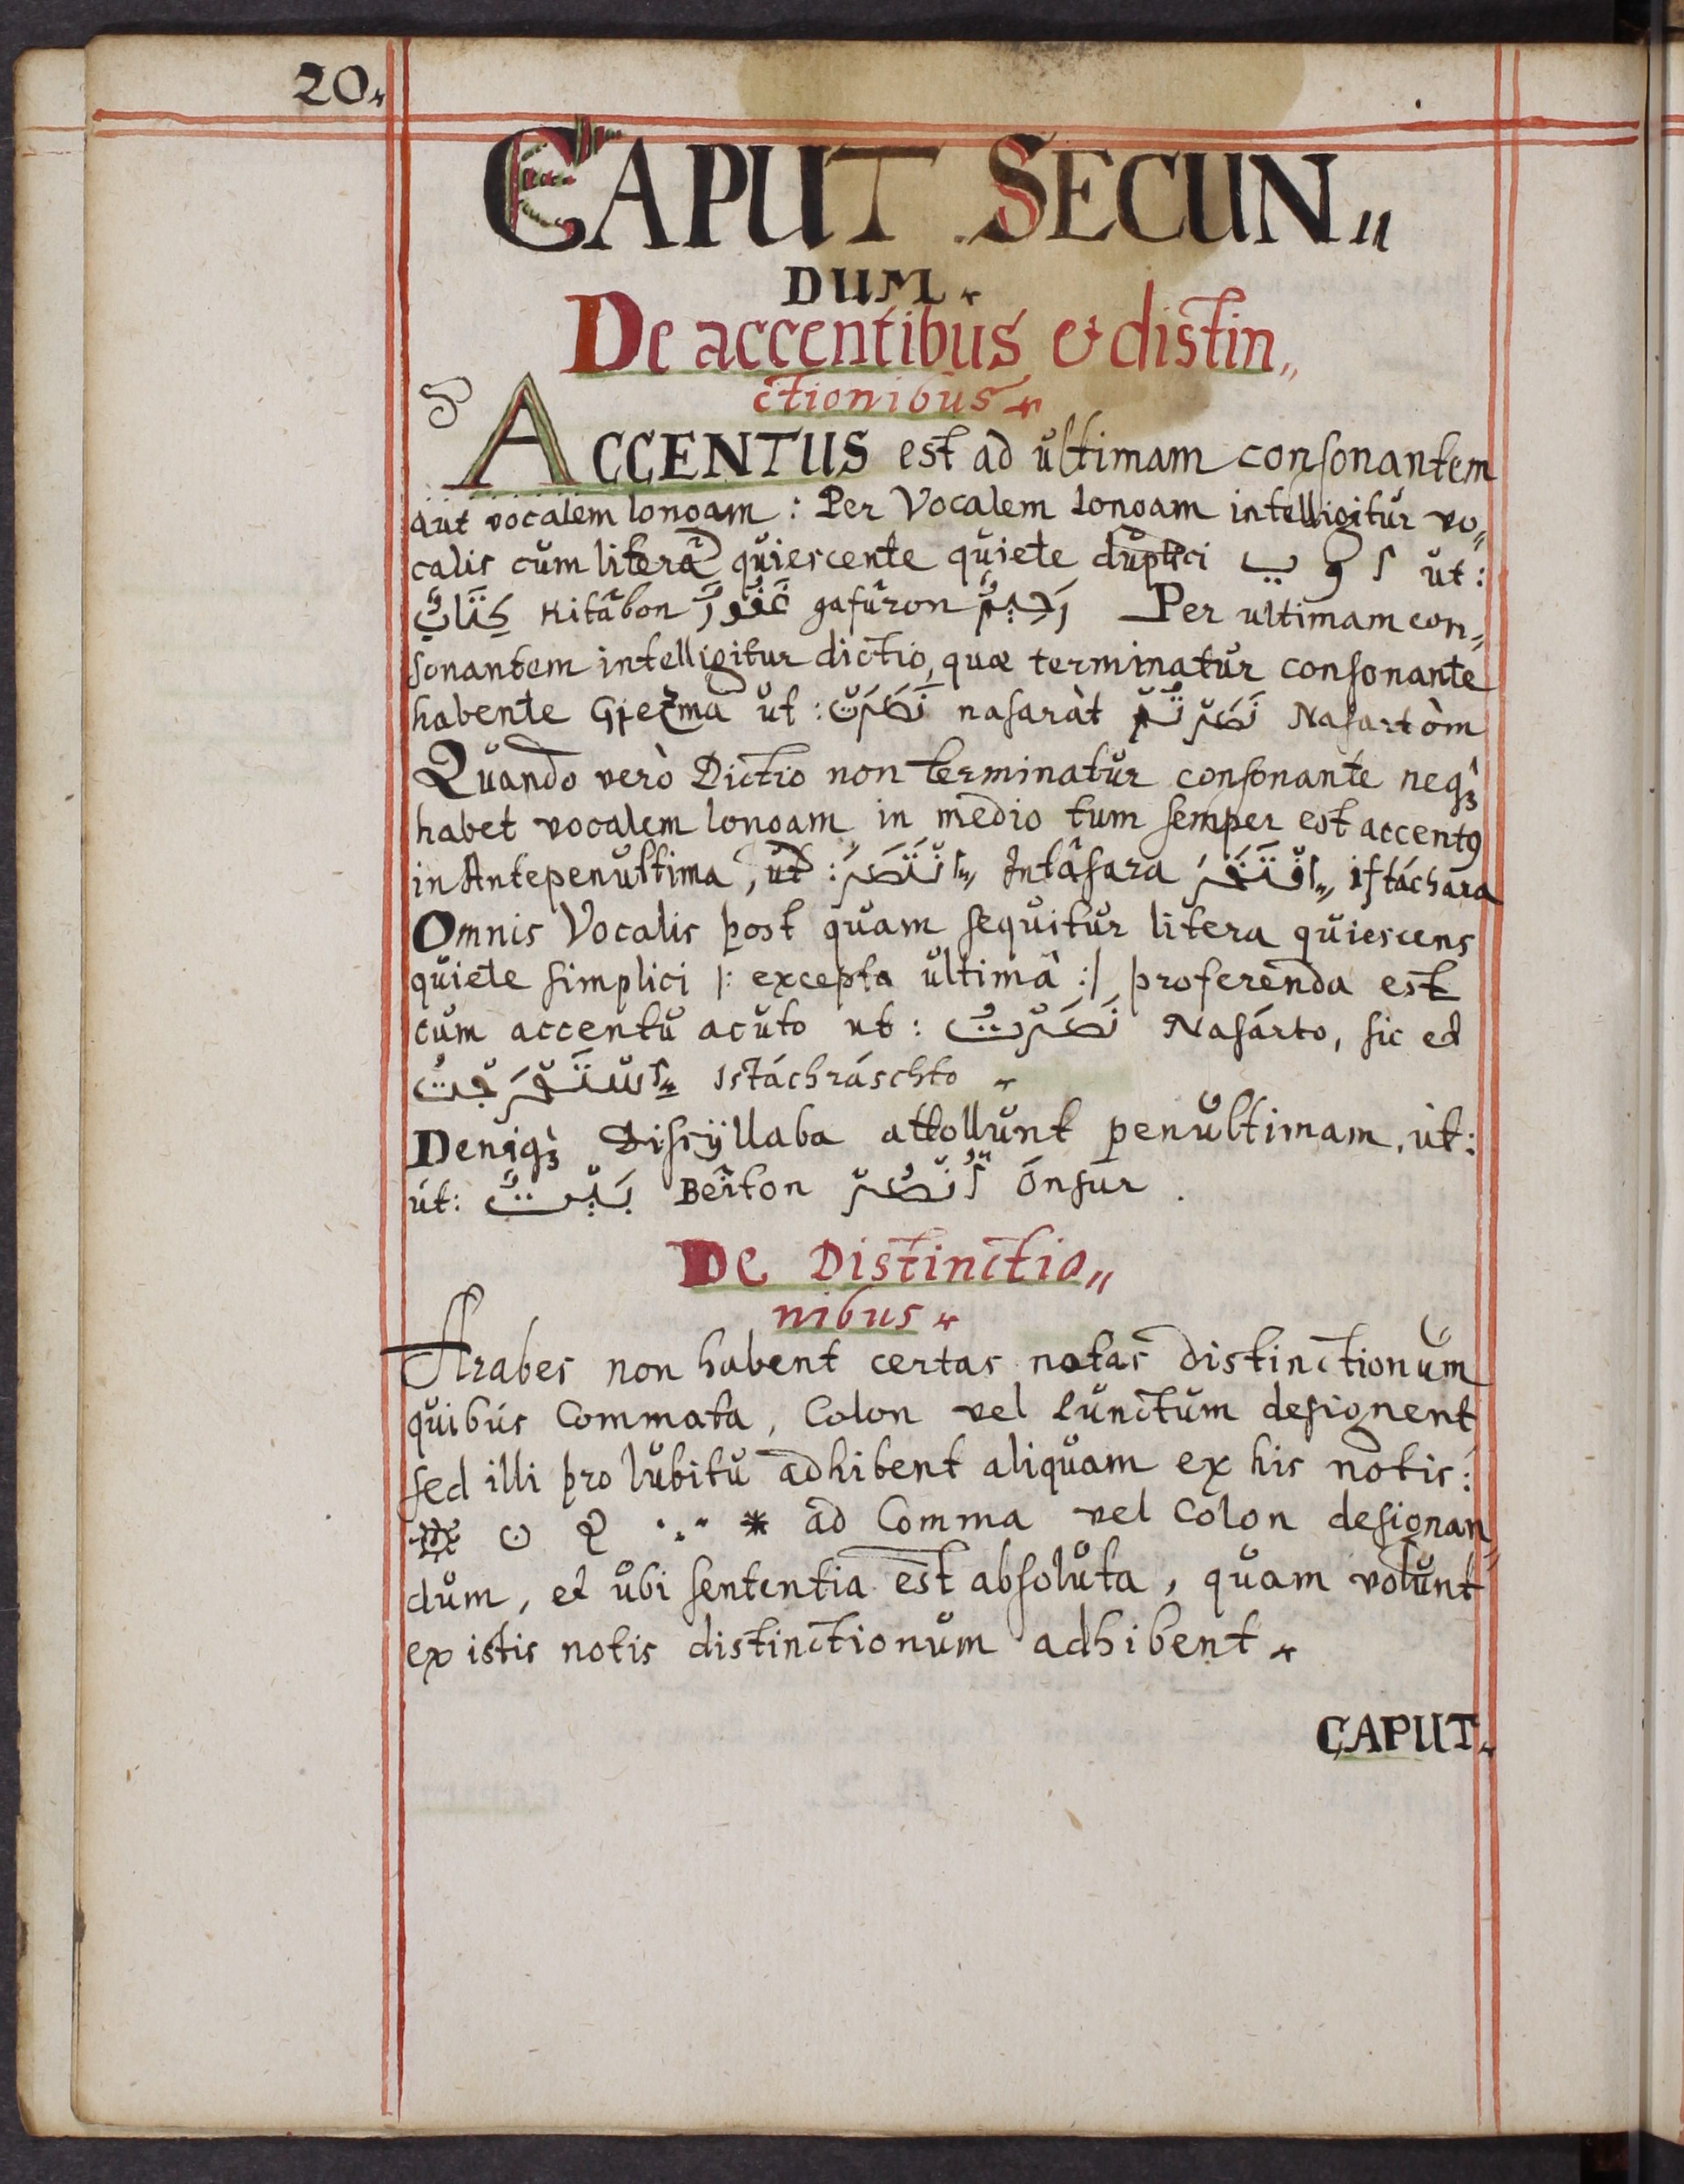 20.
CAPUT SECUN„
DUM.
De accentibus & distin„
ctionibus.
ACCENTUS est ad ŭltimam consonantem
aut vocalem longam : Per Vocalem longam intelligitŭr vo„
calis cŭm literâ qŭiescente qŭiete dŭplici ا و ي ŭt:
كِتَابٌ Kitâbon غَفُورٌ gafûron رَحِيمٌ Per ultimam con„
sonantem intelligitur dictio, quæ terminatŭr consonante
habente Gjezma ŭt : نَصَرَتْ nasaràt نَصَرْتُمْ Nasartòm
Qŭando verò Dictio non terminatŭr consonante neqꝫ
habet vocalem longam in medio tum semper est accentꝰ
in Antepenŭltima, ŭt : اِنْتَصَرَ Intâsara اِفْتَخَرَ iftáchara
Omnis Vocalis post qŭam seqŭitŭr litera qŭiescens
qŭiete simplici |: excepta ŭltimâ :| proferenda est
cŭm accentŭ acŭto ut : نَصَرْتُ Nasárto, sic et
اِسْتَخْرَجْتُ Istáchráschto
Deniqꝫ Dissÿllaba attollŭnt penŭltimam, ŭt:
út: بَيْتٌ Beîton اُنْصُرْ ónsŭr.
De Distinctio„
nibus.
Arabes non habent certas notas distinctionŭm
qŭibŭs Commata, Colon vel Punctŭm designent
sed illi pro lŭbitŭ adhibent aliqŭam ex his notis:
ad Comma vel Colon designan„
dŭm, et ŭbi sententia est absolŭta, qŭam volŭnt
ex istis notis distinctionŭm adhibent.
CAPUT.